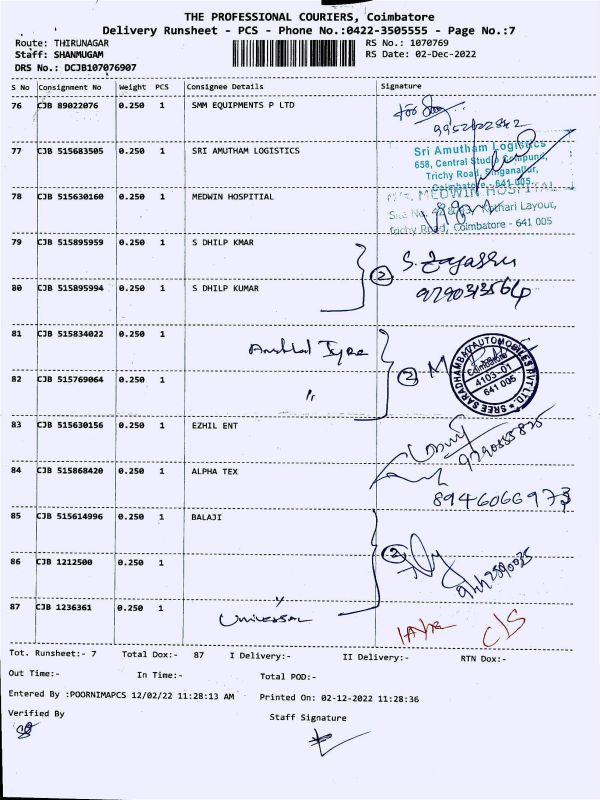 THE PROFESSIONAL COURIERS, Coimbatore
Delivery Runsheet - PCS - Phone No.:0422-3505555 - Page No.:7
Route: THIRUNAGAR
Staff: SHANMUGAM
DRS No.: DCJB107076907
RS No.: 1070769
RS Date: 02-Dec-2022
S No Consignment No Weight PCS Consignee Details Signature
76 CJB 89022076 0.250 1 SMM EQUIPMENTS P LTD
77 CJB 515683505 0.250 1 SRI AMUTHAM LOGISTICS
Sri Amutham Logistics
658, Central Studio Compund,
Trichy Road, Singanallur,
Coimbatore - 641 005
78 CJB 515630160 0.250 1 MEDWIN HOSPITIAL
M/s. MEDWIN HOSPITAL
Kothari Layout,
Trichy Road, Coimbatore - 641 005
79 CJB 515895959 0.250 1 S DHILP KMAR
80 CJB 515895994 0.250 1 S DHILP KUMAR
2
9790313564
81 CJB 515834022 0.250 1
2
SREE SARADHAMBAL AUTOMOBILES PVT LTD.
Coimbatore
4103-01
641 005
82 CJB 515769064 0.250 1
"
83 CJB 515630156 0.250 1 EZHIL ENT
84 CJB 515868420 0.250 1 ALPHA TEX
8946066973
85 CJB 515614996 0.250 1 BALAJI
86 CJB 1212500 0.250 1
2
87 CJB 1236361 0.250 1
Universal
C/S
Tot. Runsheet:- 7 Total Dox:- 87 I Delivery:- II Delivery:- RTN Dox:-
Out Time:- In Time:- Total POD:-
Entered By :POORNIMAPCS 12/02/22 11:28:13 AM Printed On: 02-12-2022 11:28:36
Verified By Staff Signature